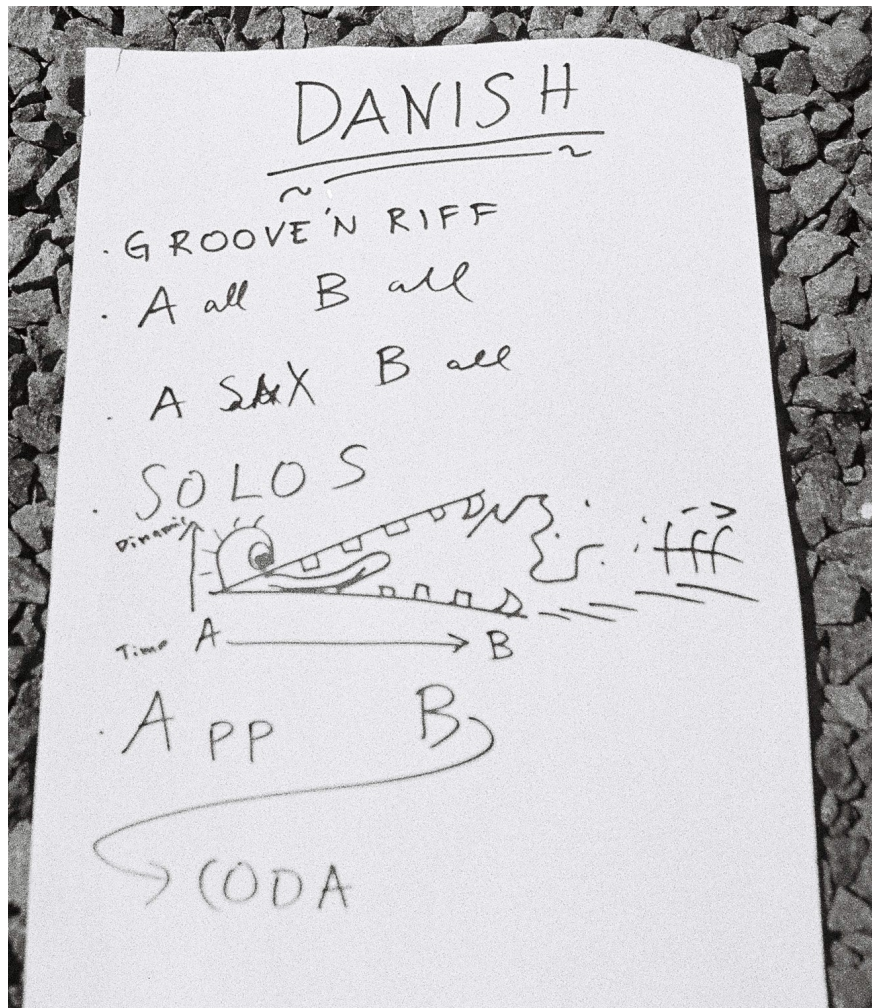 DANISH
GROOVE'N RIFF
A all B all
A SAX B all
SOLOS
Dinamic
fff
Time A B
A PP B
CODA